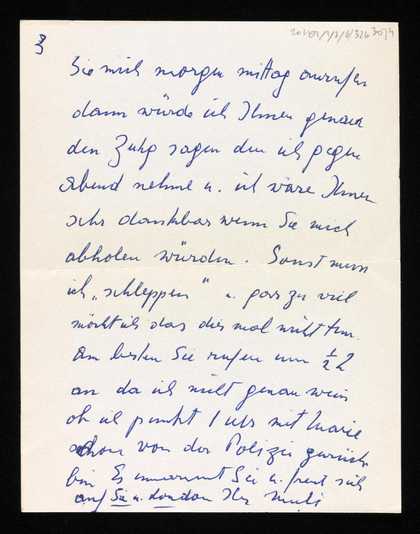 3
Sie mich morgen mittag anrufen
dann würde ich Ihnen genau
den Zuhg sagen den ich gegen
Abend nehme u. ich wäre Ihnen
sehr dankbar wenn Sie mich
abholen würden. Sonst muss
ich „schleppen" u. gar zu viel
möcht ich das dies mal nicht tun.
Am besten Sie rufen um ½ 2
an da ich nicht genau weis
ob ich punkt 1 Uhr mit Marie
schon von der Polizei zurück
bin Es umarmt Sie u. freut sich
auf Sie u. London Ihr